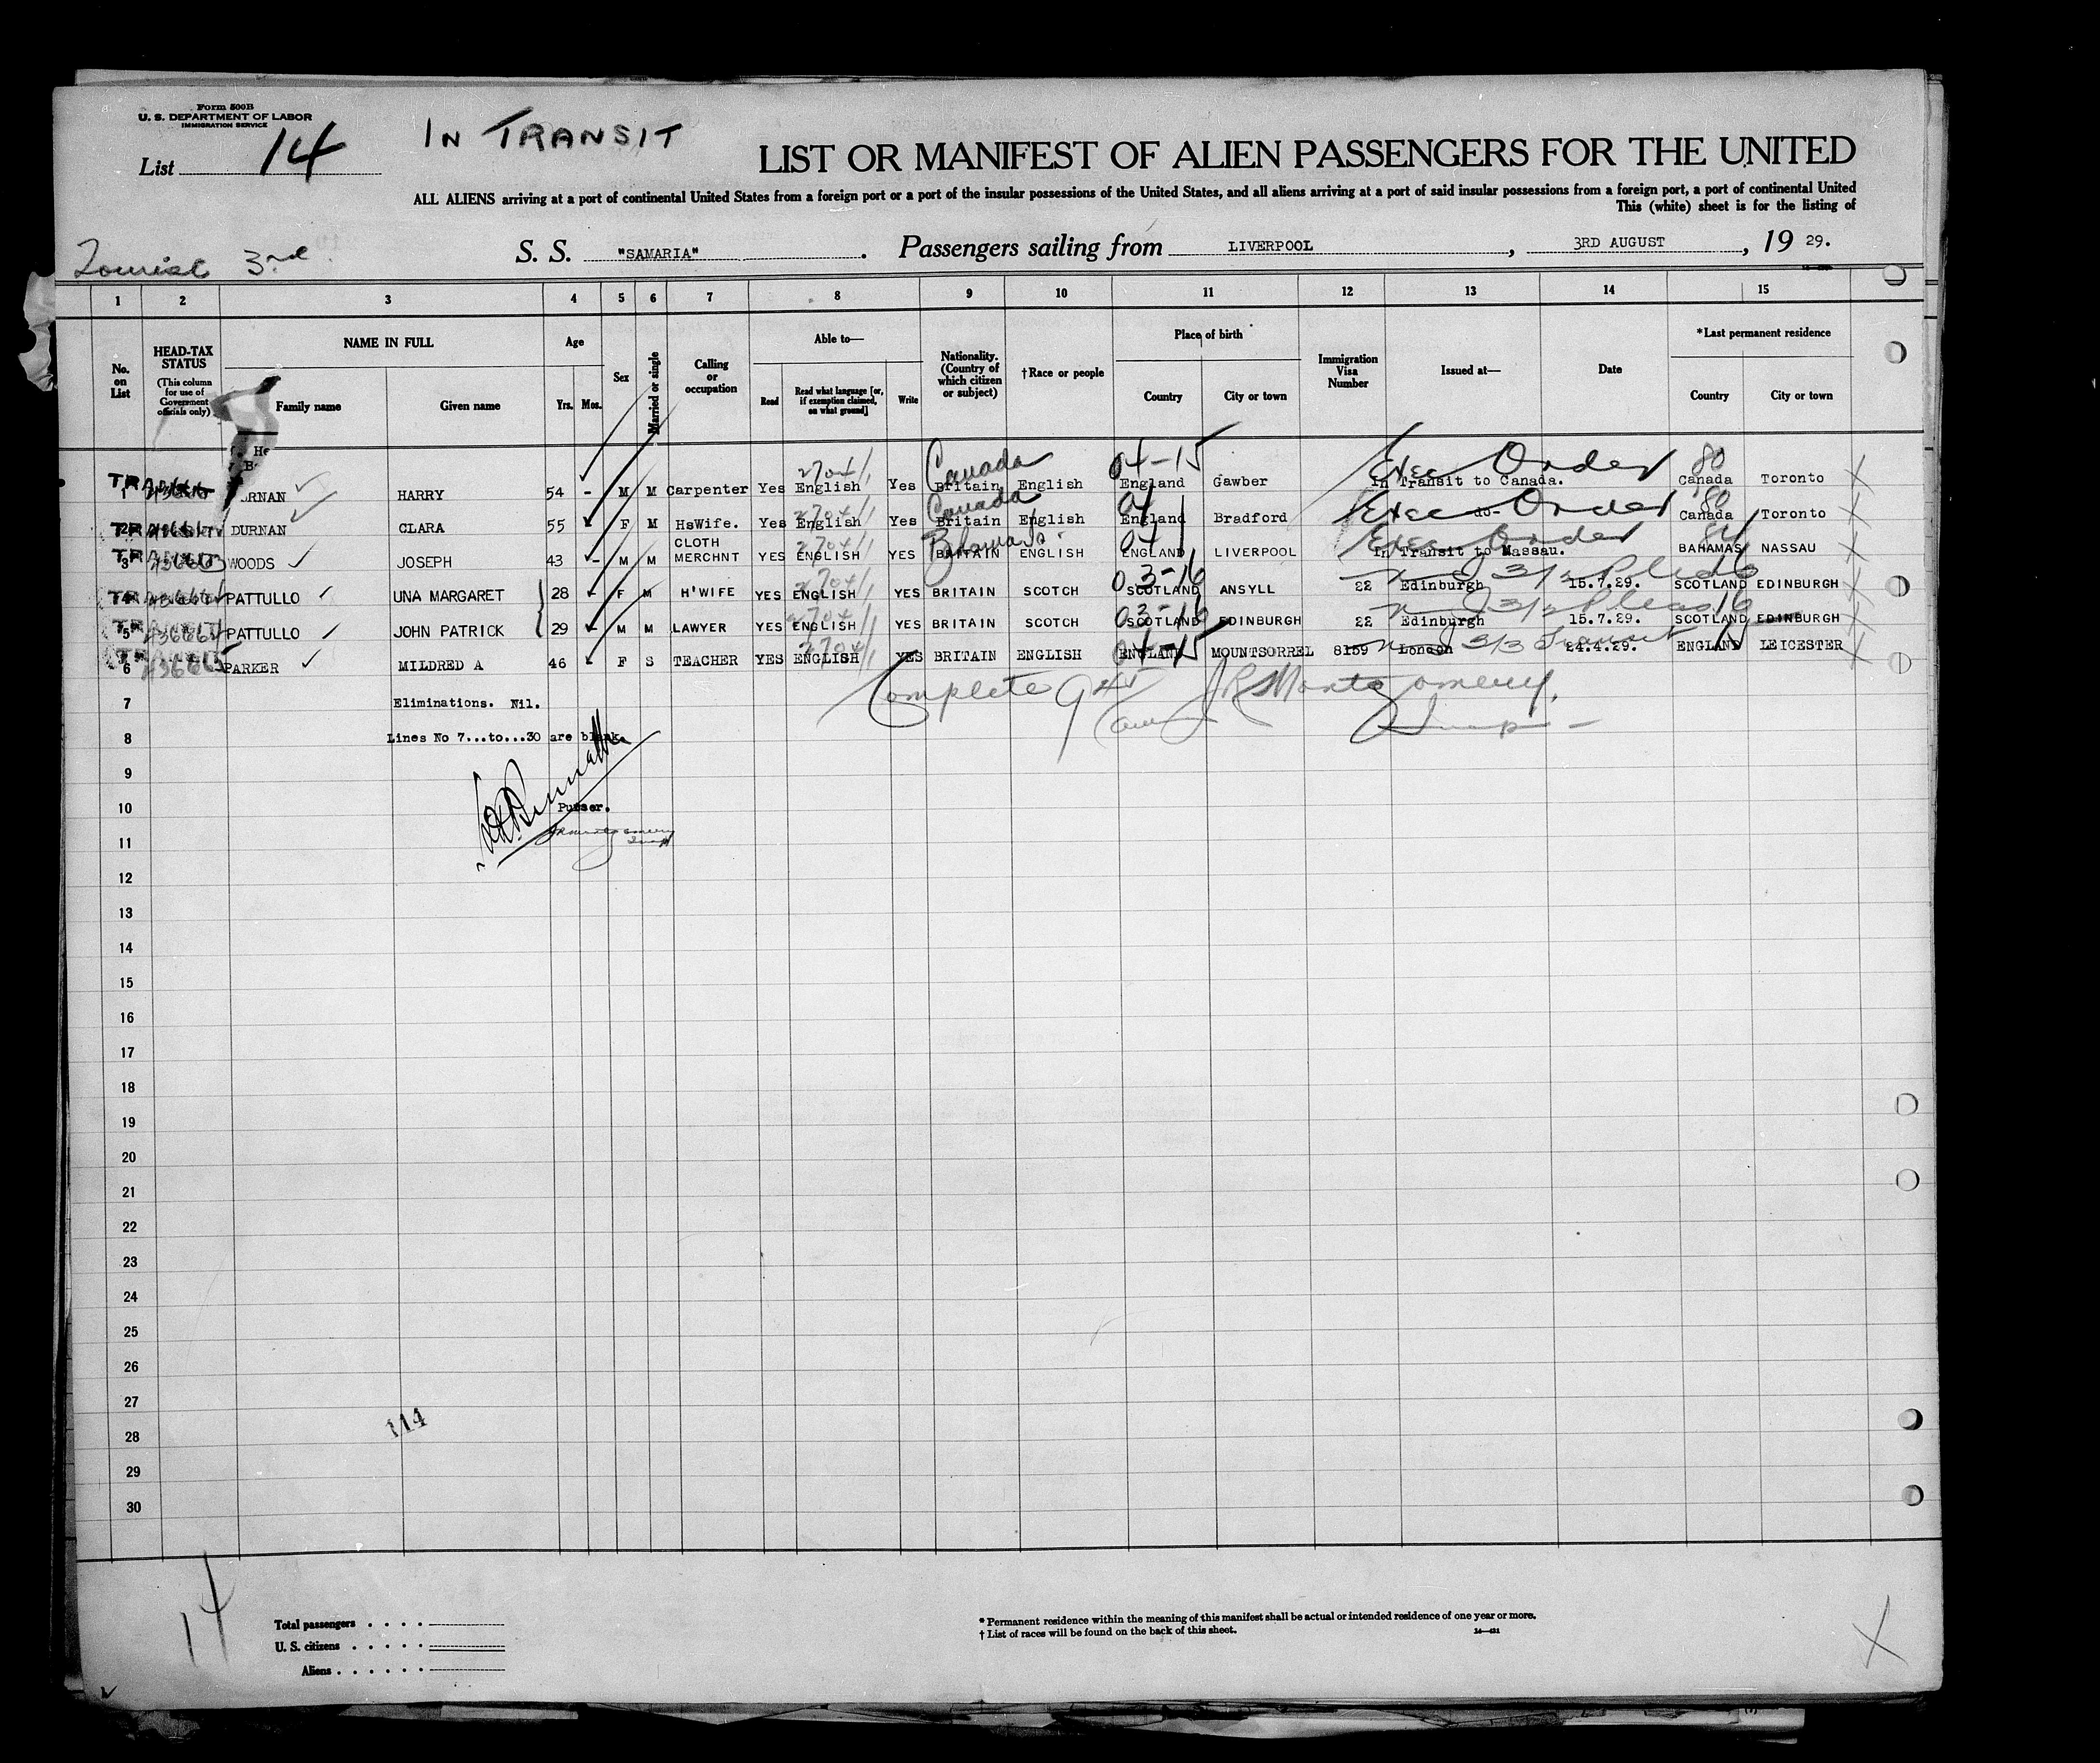 Form 500B
U. S. DEPARTMENT OF LABOR
IMMIGRATION SERVICE
List 14
IN TRANSIT
LIST OR MANIFEST OF ALIEN PASSENGERS FOR THE UNITED
ALL ALIENS arriving at a port of continental United States from a foreign port or a port of the insular possessions of the United States, and all aliens arriving at a port of said insular possessions from a foreign port, a port of continental United
This (white) sheet is for the listing of
Tourist 3rd
S. S. "SAMARIA" . Passengers sailing from LIVERPOOL , 3RD AUGUST , 19 29.
1 2 3 4 5 6 7 8 9 10 11 12 13 14 15
No. on List
HEAD-TAX STATUS (This column for use of Government officials only)
NAME IN FULL
Family name Given name
Age
Yrs. Mos.
Sex
Married or single
Calling or occupation
Able to—
Read Read what language [or, if exemption claimed, on what ground] Write
Nationality. (Country of which citizen or subject)
†Race or people
Place of birth
Country City or town
Immigration Visa Number
Issued at—
Date
*Last permanent residence
Country City or town
Canada 04-15 Exec Order 80
1 TRANSIT URNAN HARRY 54 - M M Carpenter Yes English Yes Britain English England Gawber In Transit to Canada. Canada Toronto X
Canada 04 Exec Order 80
2 TRANSIT DURNAN CLARA 55 F M HsWife. Yes English Yes Britain English England Bradford -do- Canada Toronto X
Bahamas 04 Exec Order 84
3 TRANSIT WOODS JOSEPH 43 - M M CLOTH MERCHNT YES ENGLISH YES BRITAIN ENGLISH ENGLAND LIVERPOOL In Transit to Nassau. BAHAMAS NASSAU X
03-16
4 TRANSIT PATTULLO UNA MARGARET 28 - F M H'WIFE YES ENGLISH YES BRITAIN SCOTCH SCOTLAND ANSYLL 22 Edinburgh 15.7.29. SCOTLAND EDINBURGH X
03-16 16
5 TRANSIT PATTULLO JOHN PATRICK 29 - M M LAWYER YES ENGLISH YES BRITAIN SCOTCH SCOTLAND EDINBURGH 22 Edinburgh 15.7.29. SCOTLAND EDINBURGH X
04-15 3/3 Transit 15
6 TRANSIT PARKER MILDRED A 46 F S TEACHER YES ENGLISH YES BRITAIN ENGLISH ENGLAND MOUNTSORREL 8159 London 24.4.29. ENGLAND LEICESTER X
7 Eliminations. Nil. Complete 945 am J R Montgomery.
Insp
8 Lines No 7...to...30 are blank.
9
10 Purser.
11
12
13
14
15
16
17
18
19
20
21
22
23
24
25
26
27
114
28
29
30
14
Total passengers
U. S. citizens
Aliens
* Permanent residence within the meaning of this manifest shall be actual or intended residence of one year or more.
† List of races will be found on the back of this sheet.
X